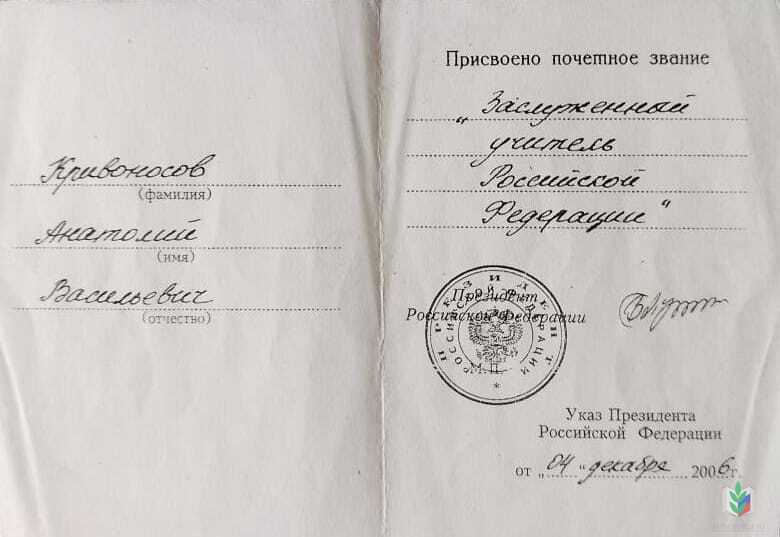 Кривоносов
(фамилия)
Анатолий
(имя)
Васильевич
(отчество)
Присвоено почетное звание
„Заслуженный
учитель
Российской
Федерации"
Президент
Российской Федерации
ПРЕЗИДЕНТ
РОССИЙСКОЙ ФЕДЕРАЦИИ
М.П.
Указ Президента
Российской Федерации
от „04" декабря 2006г.